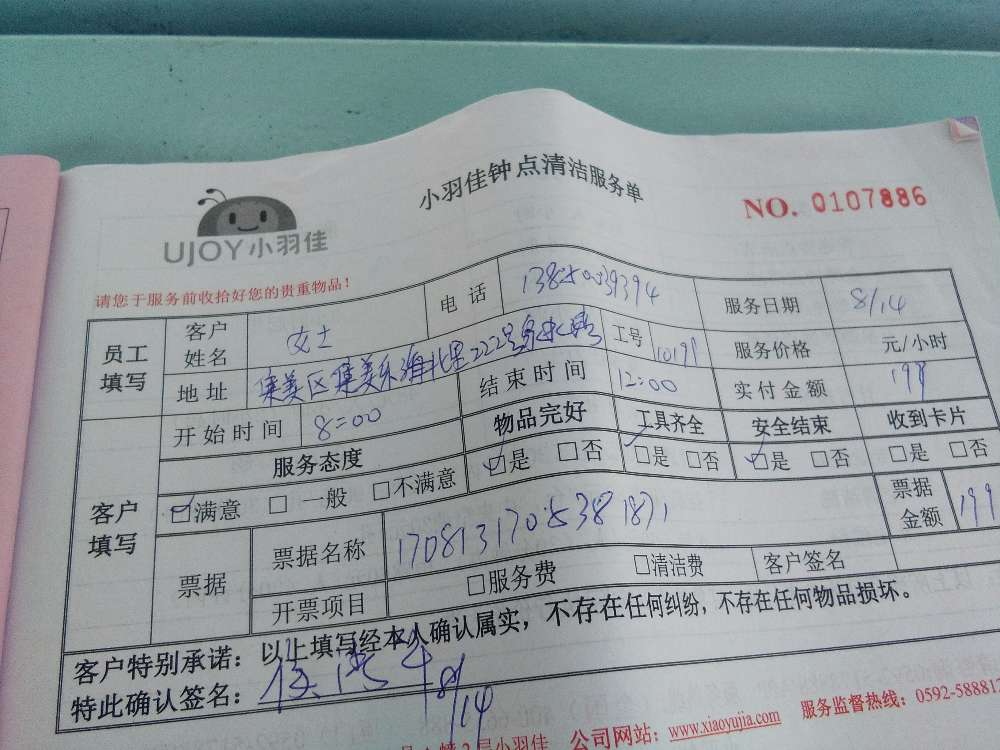 小羽佳钟点清洁服务单
NO. 0107886
UJOY小羽佳
请您于服务前收拾好您的贵重物品！
员工填写 客户姓名 女士 电话 服务日期 8/14
地址 集美区集美乐海北里222号 工号 服务价格 元/小时
开始时间 8:00 结束时间 12:00 实付金额 199
客户填写 服务态度 物品完好 工具齐全 安全结束 收到卡片
☑满意 □一般 □不满意 ☑是 □否 ☑是 □否 ☑是 □否 □是 □否
票据 票据名称 1708131705381871 票据金额 199
开票项目 □服务费 □清洁费 客户签名
客户特别承诺：以上填写经本人确认属实，不存在任何纠纷，不存在任何物品损坏。
特此确认签名： 8/14
2层小羽佳 公司网站：www.xiaoyujia.com 服务监督热线：0592-588812